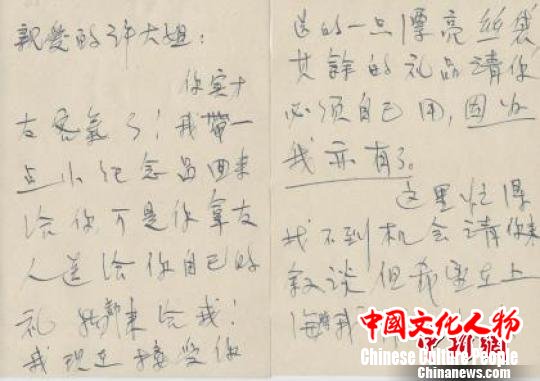 亲爱的许大姐：
你实十
太客氣了！我帶一
点小纪念品回来
给你，可是你拿友
人送给你自己的
礼物都来给我！
我现在接受你
送的一点漂亮丝袋
其餘的礼品请你
必须自己用，因为
我亦有了。
这里忙得
找不到机会请你来
叙谈 但我在上
海
中国文化人物
Chinese Culture People
Chinanews.com